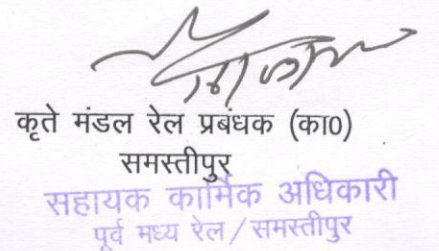 कृते मंडल रेल प्रबंधक (का0)
समस्तीपुर
सहायक कार्मिक अधिकारी
पूर्व मध्य रेल/समस्तीपुर